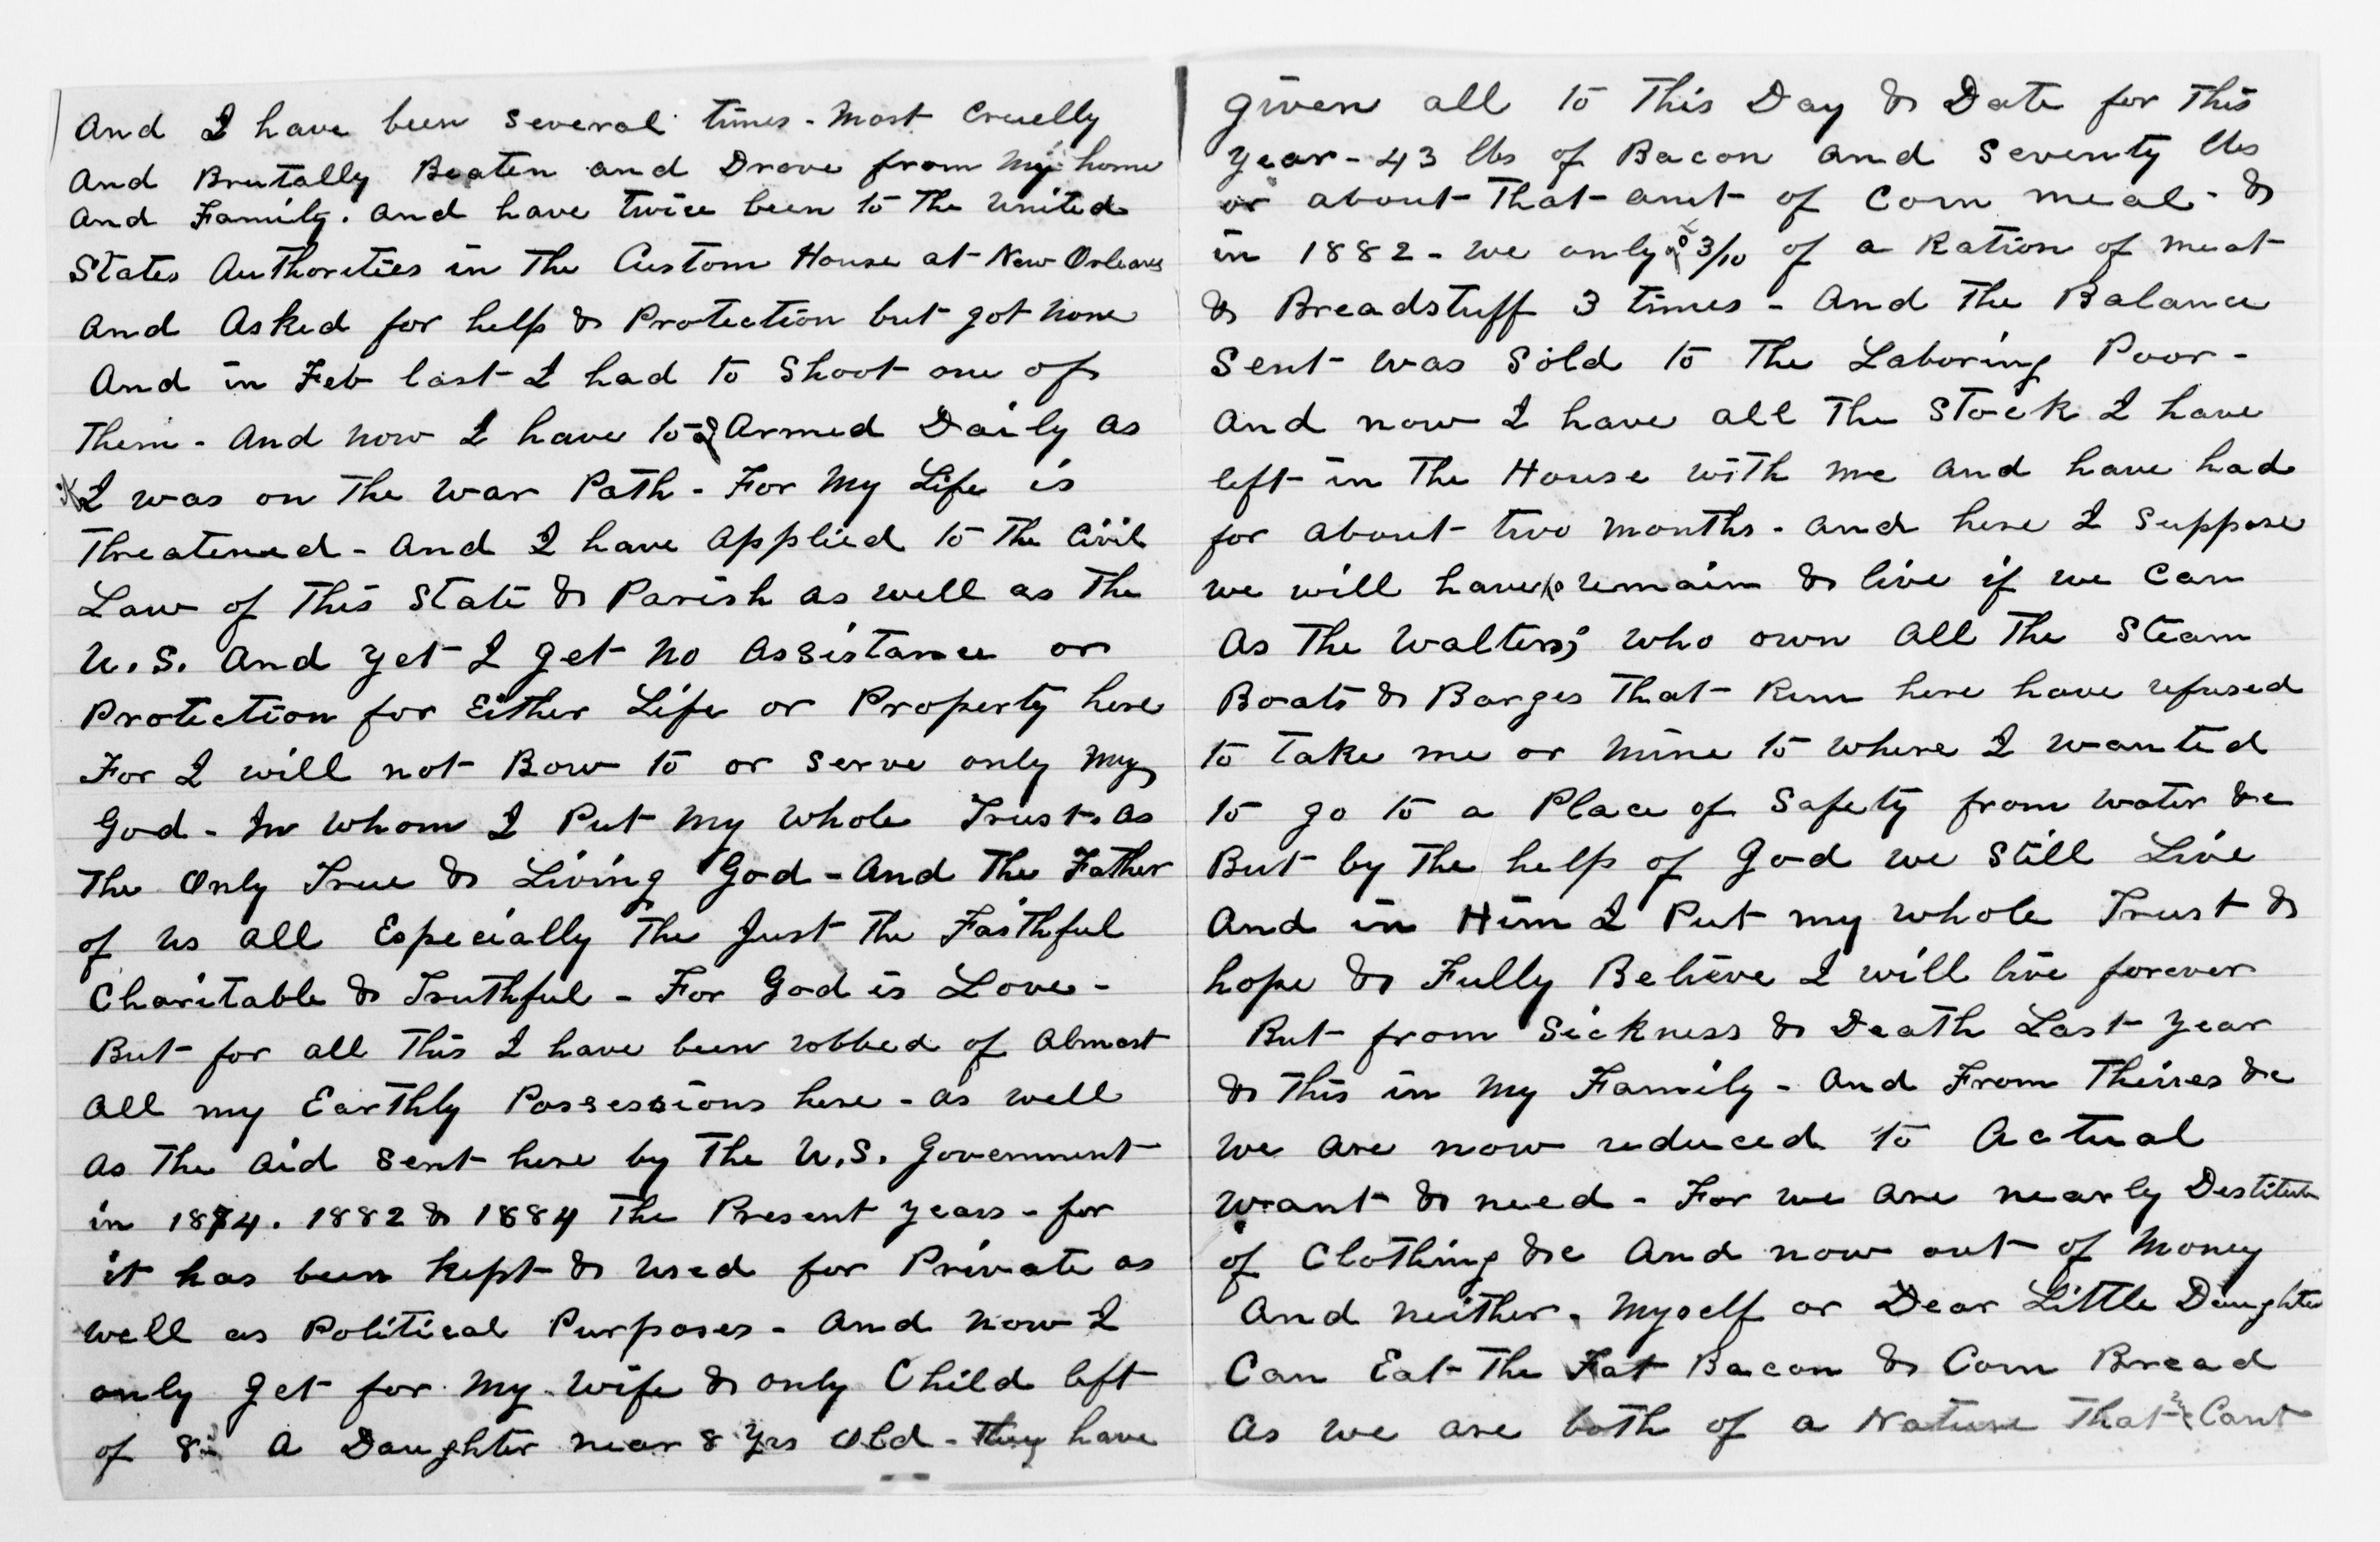 And I have been several times - most cruelly
And Brutally Beaten and Drove from my home
And Family. And have twice been to The United
States Authorities in The Custom House at New Orleans
And Asked for help & Protection but got none
And in Feb last I had to Shoot one of
Them - And now I have to go Armed Daily as
if I was on The War Path - For My Life is
Threatened - And I have Applied to The Civil
Law of This State & Parish as well as The
U.S. And yet I get no Assistance or
Protection for Either Life or Property here
For I will not Bow to or serve only my
God - In Whom I Put My Whole Trust. as
The Only True & Living God - And The Father
of us all Especially The Just The Faithful
Charitable & Truthful - For God is Love -
But for all This I have been robbed of Almost
All my Earthly Possessions here - as well
As The Aid Sent here by The U.S. Government
in 1874. 1882 & 1884 The Present years - for
it has been Kept & Used for Private as
well as Political Purposes - And now I
only get for my wife & only Child left
of 8 A Daughter near 8 yrs Old - They have
given all to This Day & Date for This
year - 43 lbs of Bacon and Seventy lbs
or about That amt of Corn meal - &
in 1882 - we only 3/10 of a Ration of meat
& Breadstuff 3 times - And The Balance
Sent was Sold to The Laboring Poor -
And now I have all The Stock I have
left in The House with me and have had
for about two months - And here I Suppose
we will have to remain & live if we can
As The Walters; who own All The Steam
Boats & Barges That Run here have refused
to take me or mine to where I wanted
to go to a Place of Safety from Water &c
But by The help of God we Still Live
And in Him I Put my Whole Trust &
hope & Fully Believe I will live forever
But from Sickness & Death Last year
& This in My Family - And From Theives &c
We Are now reduced to Actual
Want & need - For we are nearly Destitute
of Clothing &c And now out of Money
And neither. Myself or Dear Little Daughter
Can Eat The Fat Bacon & Corn Bread
As we are both of a Nature That Cant